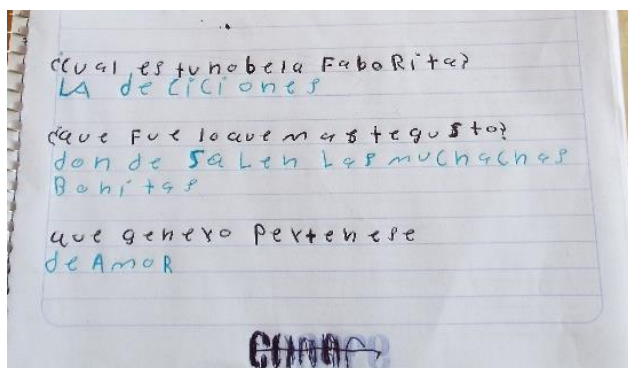 ¿Cual es tu nobela FaboRita?
LA de CiCiones
¿que Fue lo que mas te gusto?
donde SaLen Las muchachas
Bonitas
que genero Pertenese
de AmoR